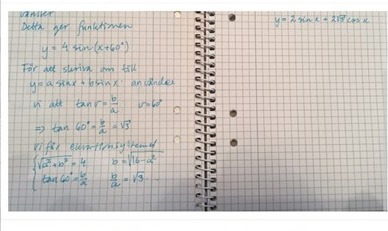 Detta ger funktionen
y = 4 sin (x+60°)
För att skriva om till
y = a sin x + b sin x använder
vi att tan v = b/a v=60°
⇒ tan 60° = b/a = √3
Vi får ekvationssystemet
√a²+b² = 4 b = √16-a²
tan 60° = b/a b/a = √3
y = 2 sin x + 2√3 cos x